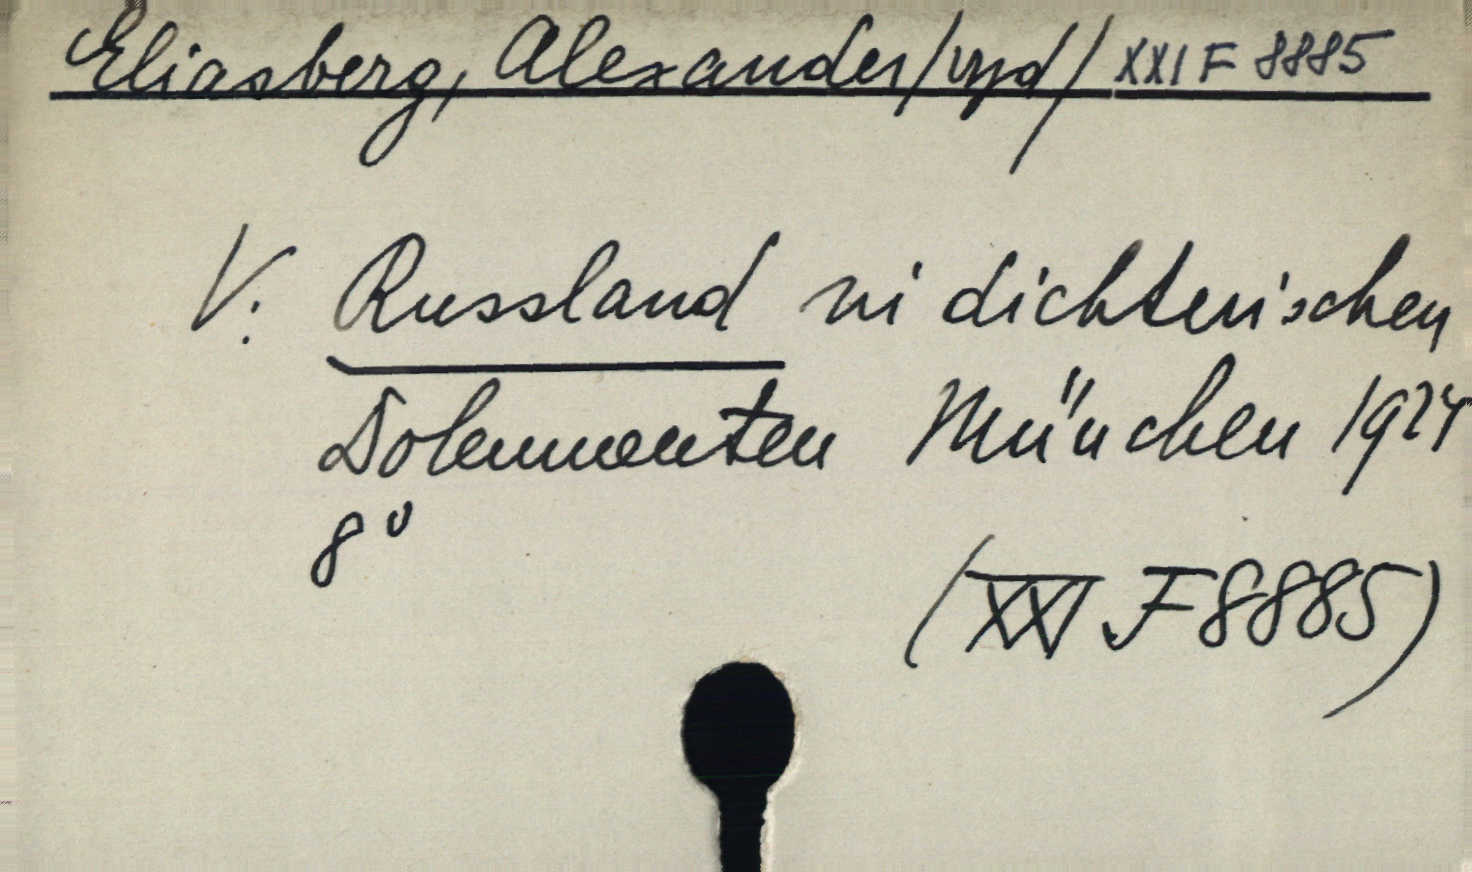 Eliasberg, Alexander /vyd/ XXI F 8885
V. Russland in dichterischen
Dokumenten München 1924
8°
(XXI F 8885)